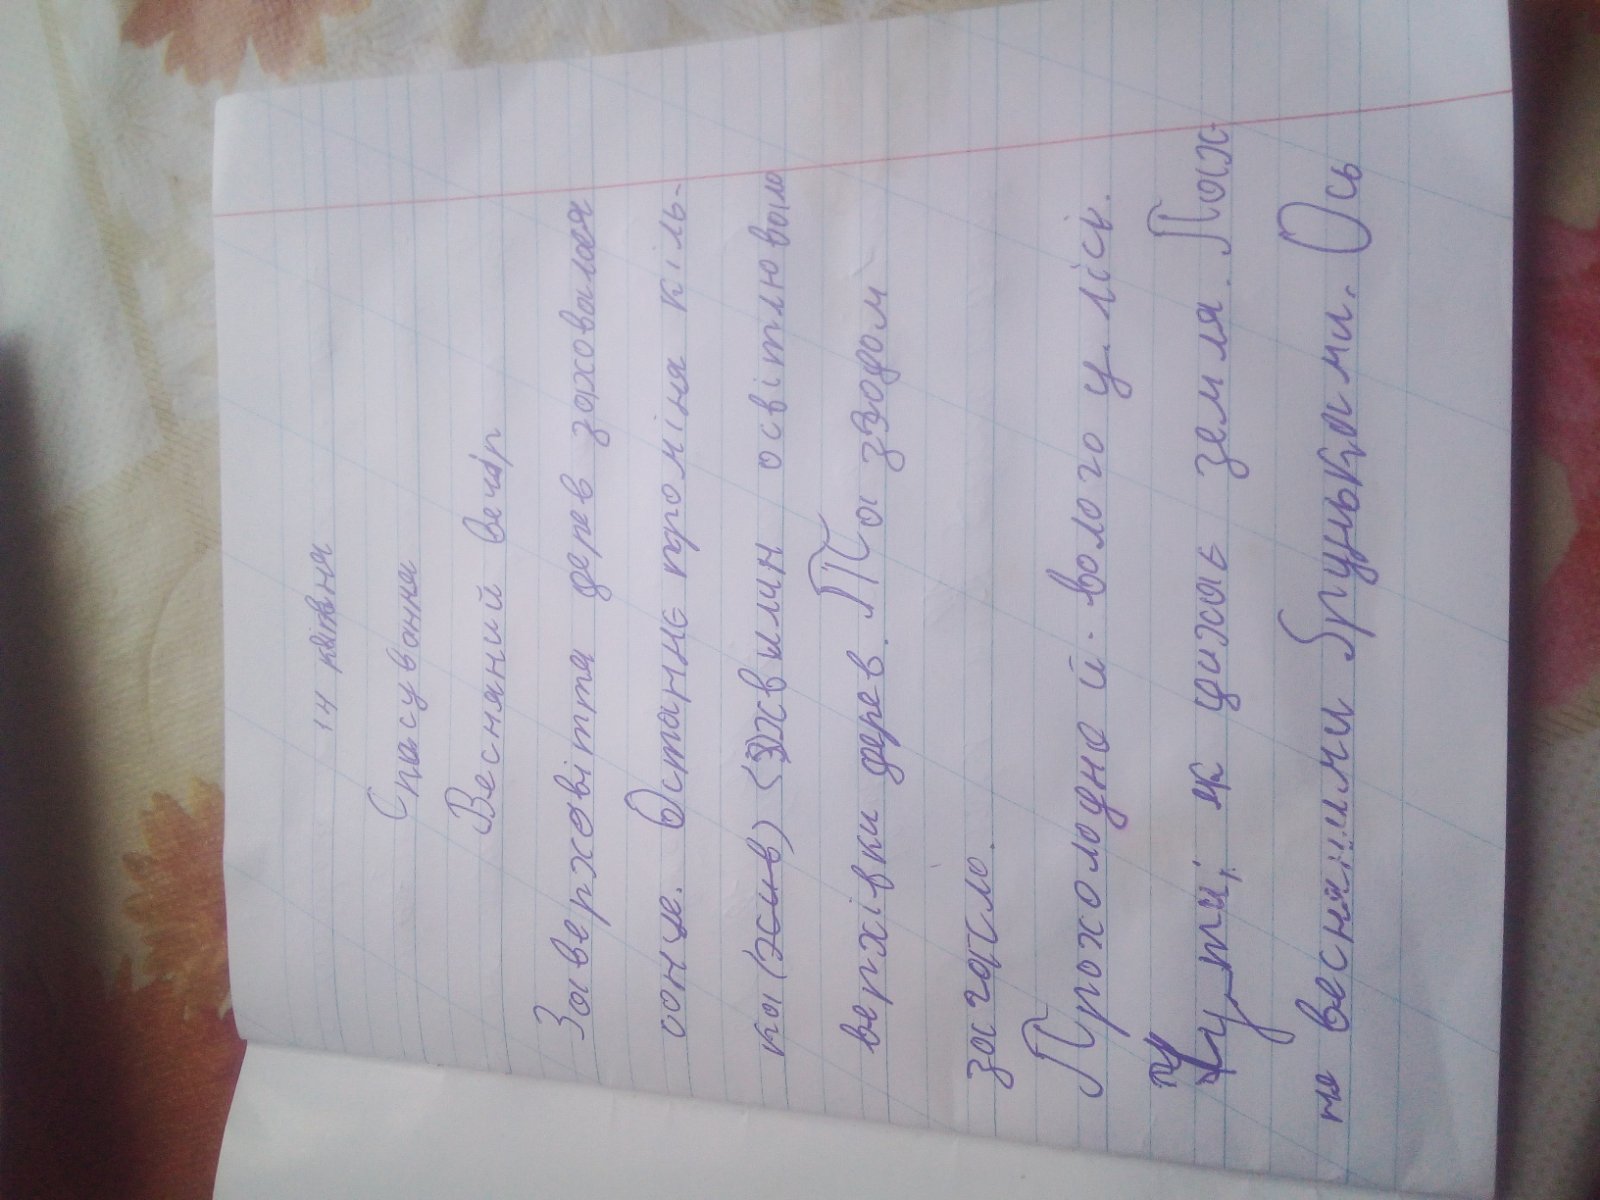 14 квітня
Списування
Весняний вечір
За верховіття дерев заховалося
сонце. Останнє проміння кіль-
ка (жив) (з)хвилин освітлювало
верхівки дерев. Та згодом
загасло.
Прохолодно й волого у лісі.
Чути, як дихає земля. Пах-
не весняними бруньками. Ось